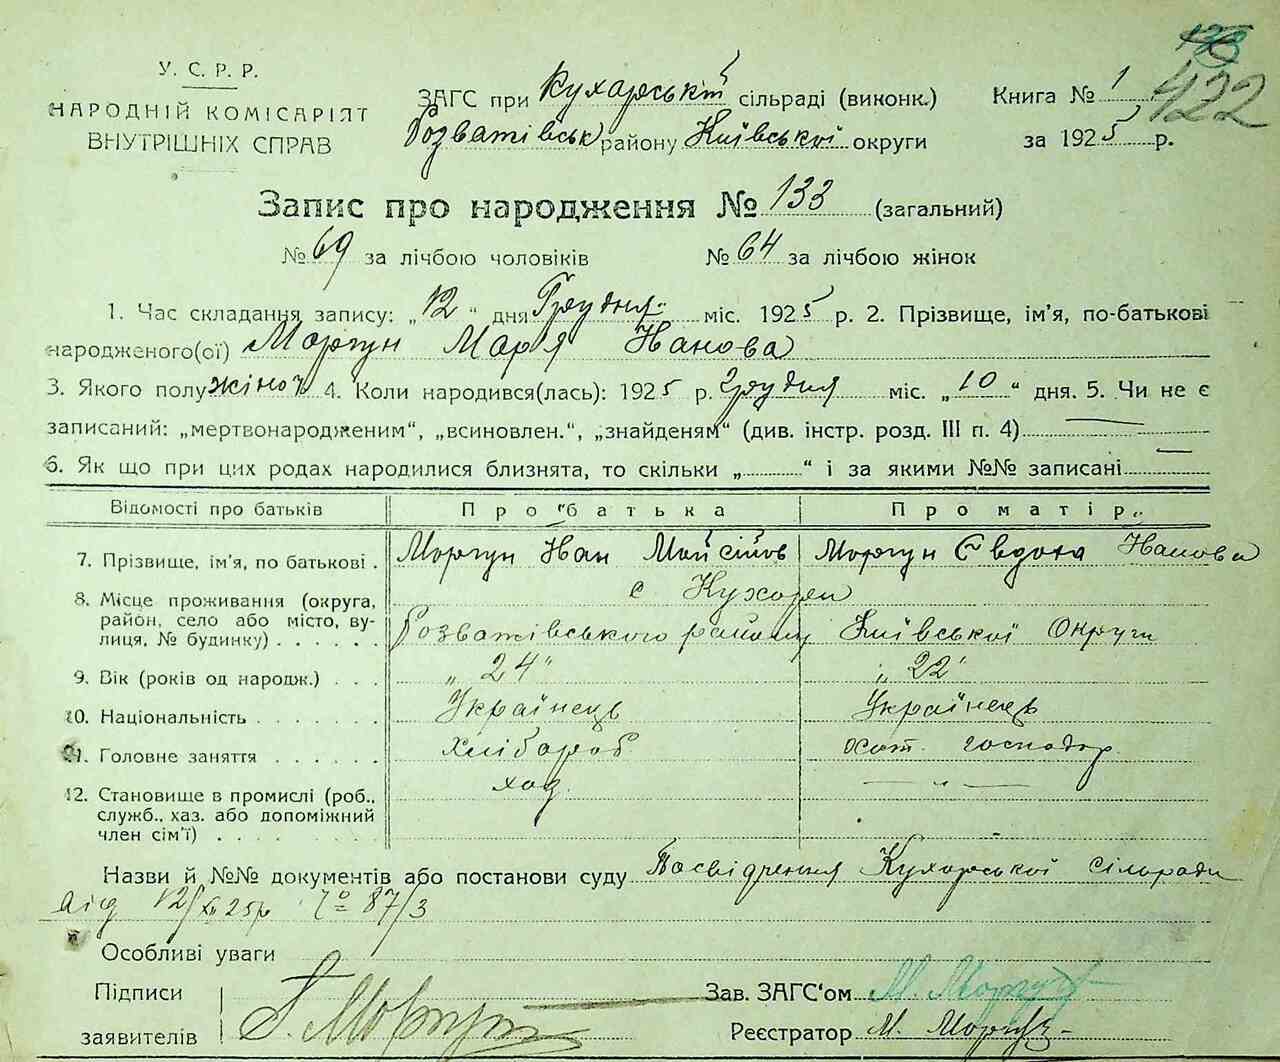 У. С. Р. Р.
НАРОДНІЙ КОМІСАРІЯТ
ВНУТРІШНІХ СПРАВ
ЗАГС при Кухарській сільраді (виконк.)
Розватівськ району Київської округи
Книга № 1
422
за 1925 р.
Запис про народження № 133 (загальний)
№ 69 за лічбою чоловіків № 64 за лічбою жінок
1. Час складання запису: „12“ дня Грудня міс. 1925 р. 2. Прізвище, ім'я, по-батькові
народженого(ої) Моргун Марія Іванова
3. Якого полу жіноч 4. Коли народився(лась): 1925 р. Грудня міс. „10“ дня. 5. Чи не є
записаний: „мертвонародженим“, „всиновлен.“, „знайденям“ (див. інстр. розд. III п. 4)
6. Як що при цих родах народилися близнята, то скільки „ “ і за якими №№ записані
Відомості про батьків Про батька Про матір
7. Прізвище, ім'я, по батькові . Моргун Іван Мойсійов Моргун Євдокя Іванова
8. Місце проживання (округа, с Кухари
район, село або місто, ву- Розватівського району Київської Округи
лиця, № будинку) . . . . . .
9. Вік (років од народж.) . . . „24“ „22“
10. Національність . . . . . . . Українець Українець
11. Головне заняття . . . . . . хлібороб хат. господар.
12. Становище в промислі (роб., хаз. — „ —
служб., хаз. або допоміжний
член сім'ї) . . . . . . . .
Назви й №№ документів або постанови суду Посвідчення Кухарської сільради
від 12/XII 25р № 87/3
Особливі уваги
Підписи
заявителів Моргун
Зав. ЗАГС'ом М. Моргун
Реєстратор М. Моргун